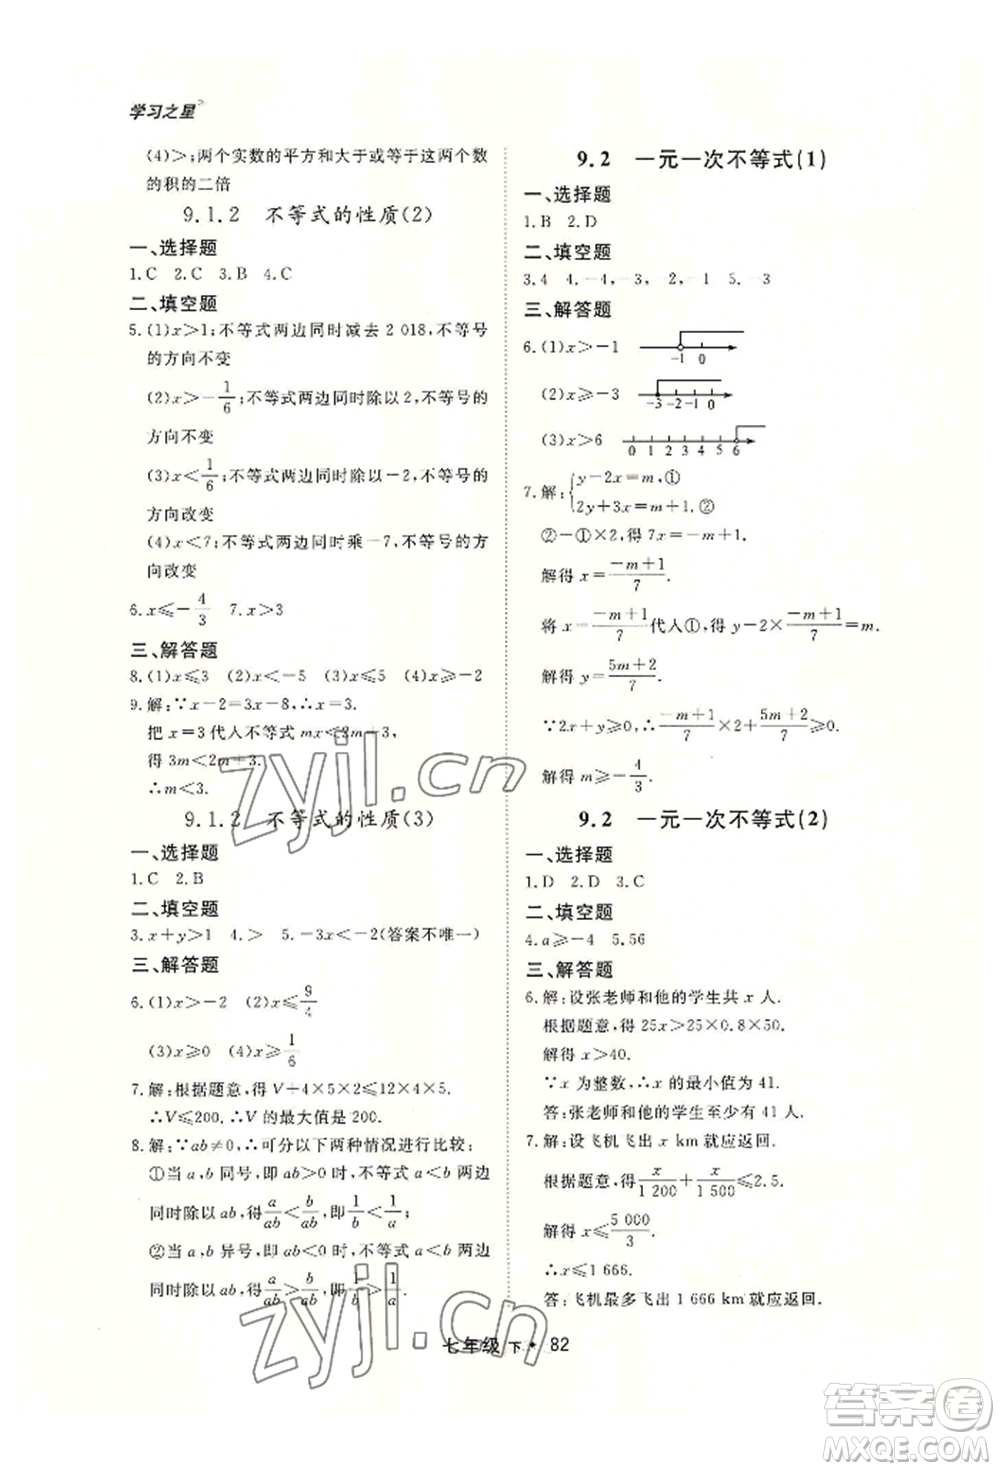 学习之星
(4)>;两个实数的平方和大于或等于这两个数
的积的二倍
9.1.2 不等式的性质(2)
一、选择题
1.C 2.C 3.B 4.C
二、填空题
5.(1)x>1;不等式两边同时减去 2 018,不等号
的方向不变
(2)x>-1/6;不等式两边同时除以2,不等号的
方向不变
(3)x<1/6;不等式两边同时除以-2,不等号的
方向改变
(4)x<7;不等式两边同时乘-7,不等号的方
向改变
6.x≤-4/3 7.x>3
三、解答题
8.(1)x≤3 (2)x<-5 (3)x≤5 (4)x≥-2
9.解:∵x-2=3x-8,∴x=3.
把 x=3代人不等式 mx<2m+3,
得 3m<2m+3.
∴m<3.
9.1.2 不等式的性质(3)
一、选择题
1.C 2.B
二、填空题
3.x+y>1 4.> 5.-3x<-2(答案不唯一)
三、解答题
6.(1)x>-2 (2)x≤9/4
(3)x≥0 (4)x≥1/6
7.解:根据题意,得 V+4×5×2≤12×5×4.
∴V≤200.∴V 的最大值是 200.
8.解:∵ab≠0,∴可分以下两种情况进行比较:
①当 a,b 同号,即 ab>0 时,不等式 a<b 两边
同时除以 ab,得a/ab<b/ab,即1/b<1/a;
②当 a,b 异号,即 ab<0 时,不等式 a<b 两边
同时除以 ab,得a/ab>b/ab,即1/b>1/a.
9.2 一元一次不等式(1)
一、选择题
1.B 2.D
二、填空题
3.4 4.-4, -2, 2, 1 5.-3
三、解答题
6.(1)x>-1 -1 0
(2)x≥-3 -3 -2 -1 0
(3)x>6 0 1 2 3 4 5 6
7.解:{y-2x=m,①
2y+3x=m+1.②
②-①×2,得 7x=-m+1.
解得 x=(-m+1)/7.
将 x=(-m+1)/7代人①,得 y-2×(-m+1)/7=m.
解得 y=(5m+2)/7.
∵2x+y≥0,∴(-m+1)/7×2+(5m+2)/7≥0.
解得 m≥-4/3.
9.2 一元一次不等式(2)
一、选择题
1.D 2.D 3.C
二、填空题
4.a≥-4 5.56
三、解答题
6.解:设张老师和他的学生共 x 人.
根据题意,得 25x>25×0.8×50.
解得 x>40.
∵x 为整数,∴x 的最小值为 41.
答:张老师和他的学生至少有 41 人.
7.解:设飞机飞出 x km 就应返回.
根据题意,得x/1 200+x/1 500≤2.5.
解得 x≤5 000/3.
∴x≤1 666.
答:飞机最多飞出 1 666 km就应返回.
七年级 下·82
zyjl.cn
zyjl.cn
答案圈
MXQE.COM